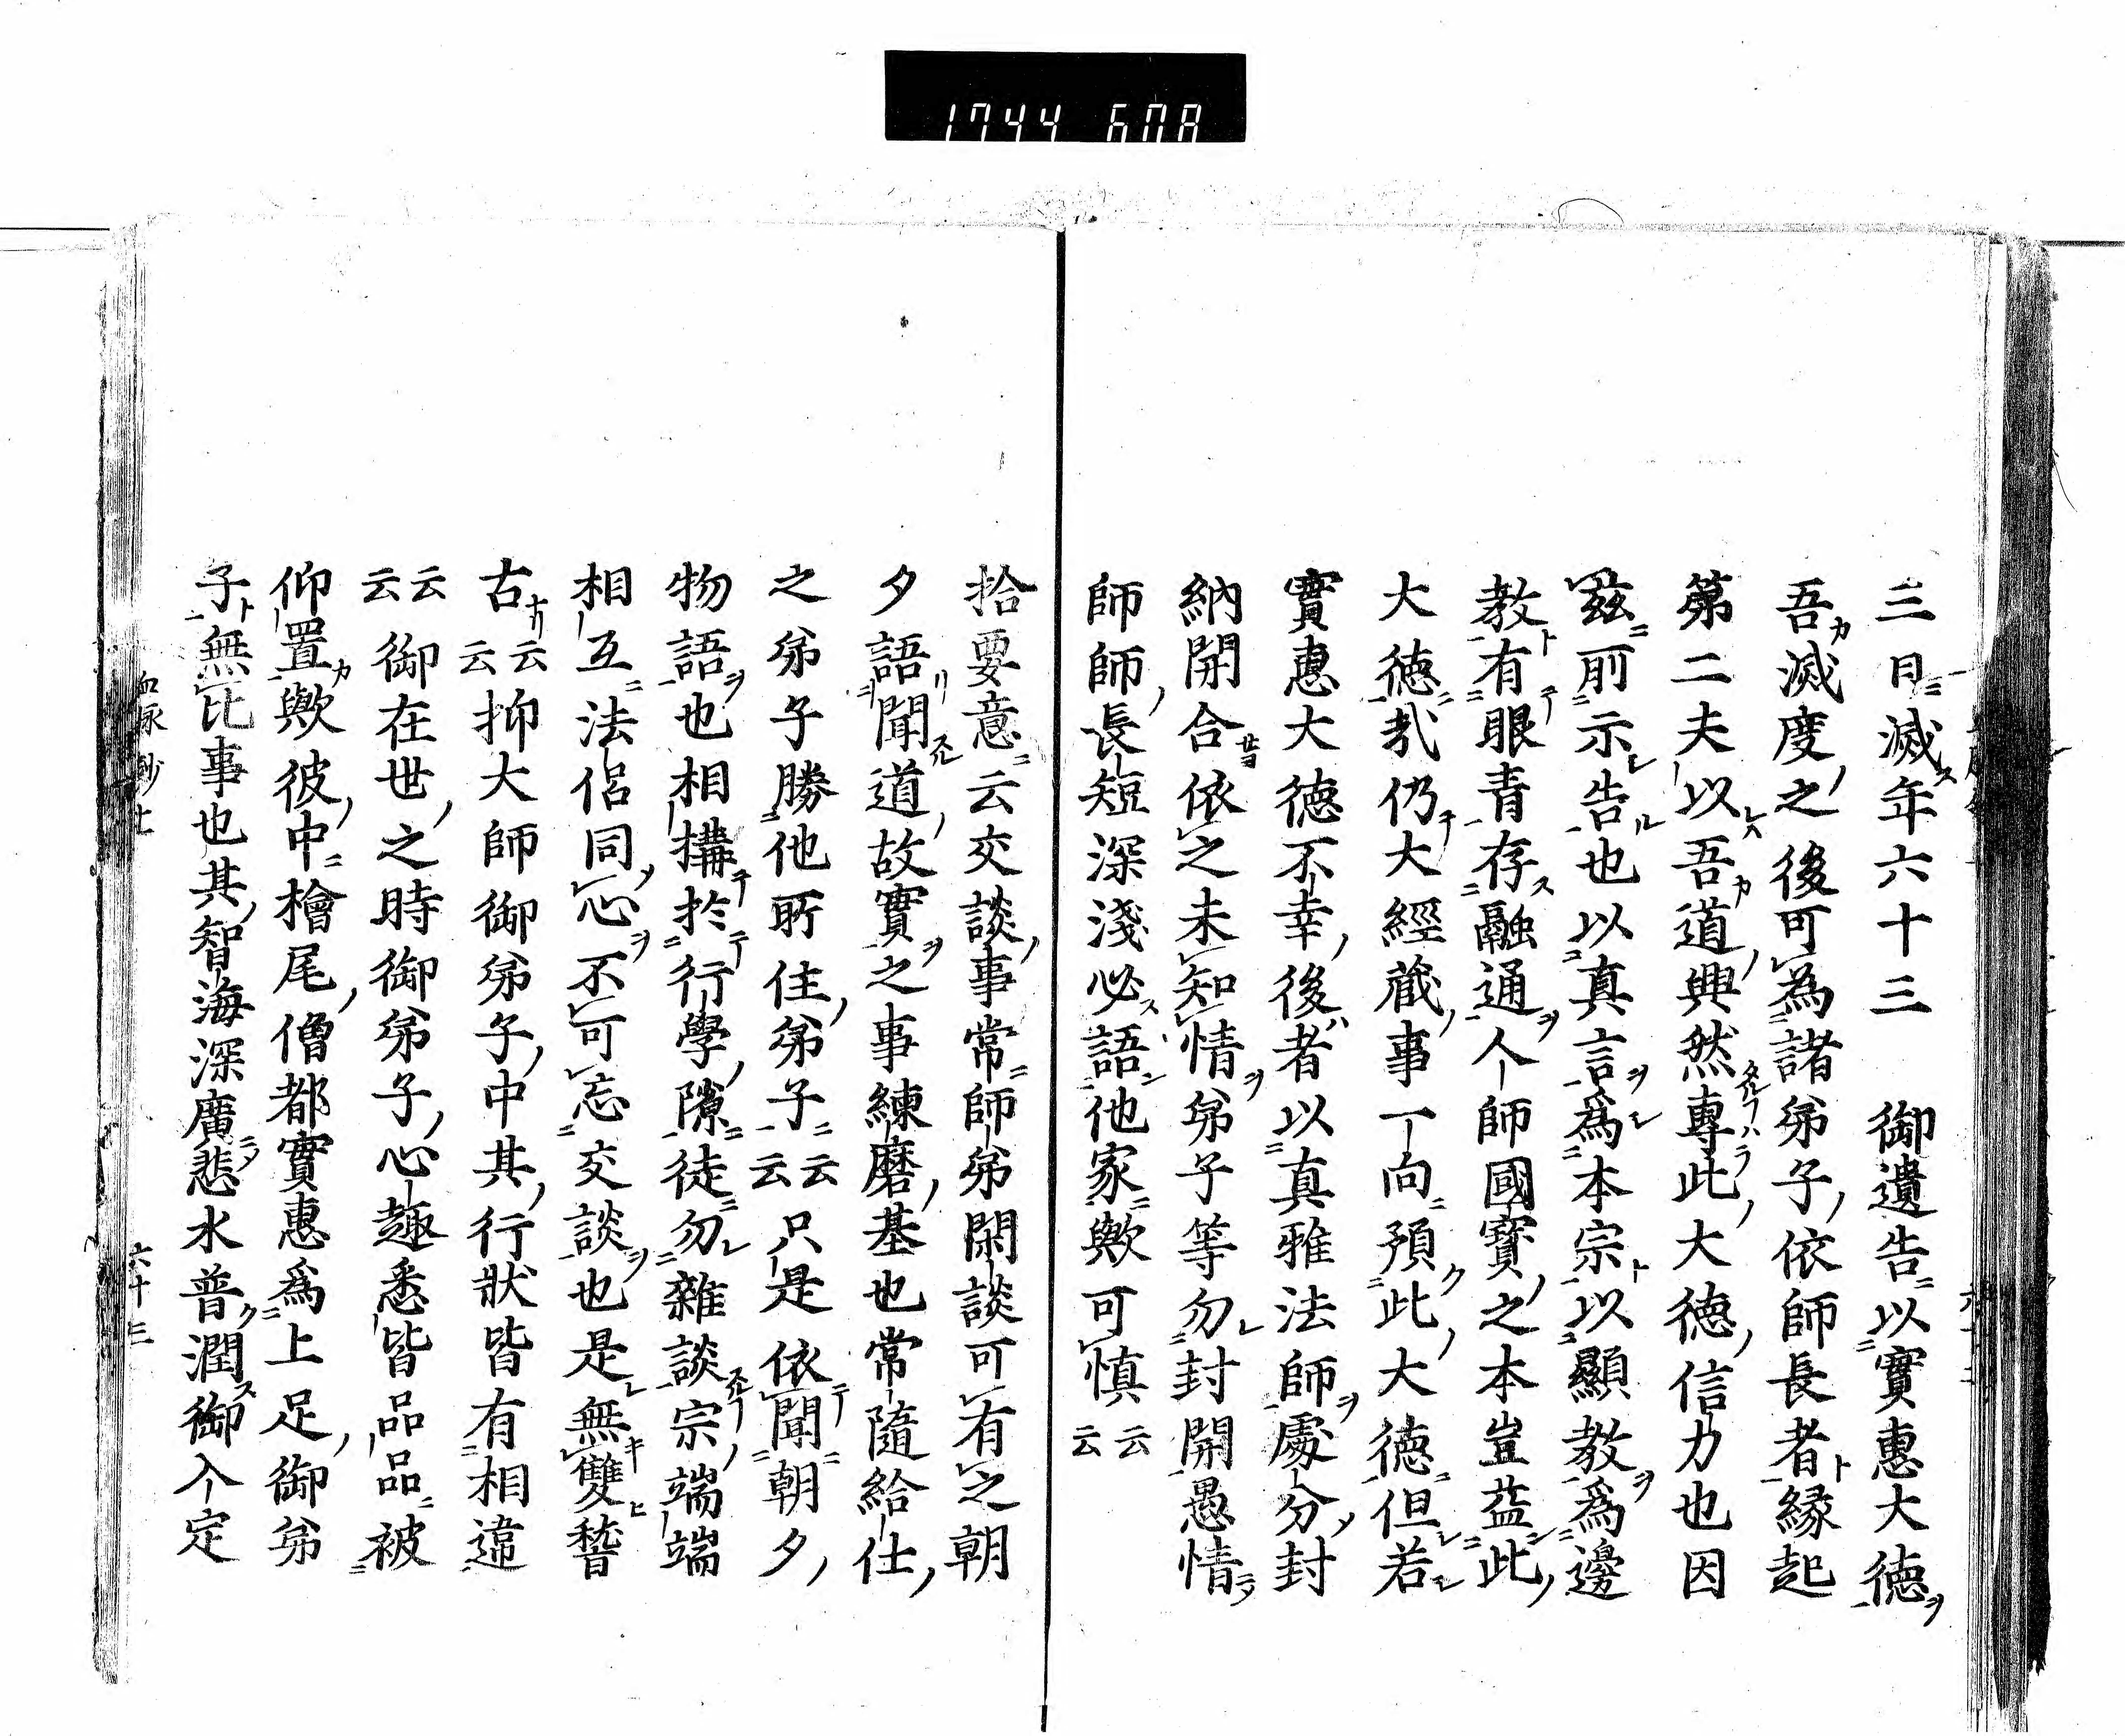 1744 608
三日滅年六十三　御遺告以實惠大德
吾滅度之後可為諸弟子依師長者緣起
第二夫以吾道興然專此大德信力也因
茲前示告也以真言為本宗以顯教為邊
教有眼青存融通个師國寶之本豈蓋此
大德哉仍大經藏事一向預此大德但若
實惠大德不幸後者以真雅法師處分封
納開合依之未知情弟子等勿封開愚情
師師長短深淺必語他家歟可慎云云
拾要意云交談事常師弟閑談可有之朝
夕語聞道故實之事練磨基也常隨給仕
之弟子勝他所住弟子云云只是依聞朝夕
物語也相搆於行學隙徒勿雜談宗端端
相互法侶同心不可忘交談也是無雙誓
古云云抑大師御弟子中其行狀皆有相違
云云御在世之時御弟子心趣悉皆品品被
仰置歟彼中檜尾僧都實惠為上足御弟
子無比事也其智海深廣悲水普潤御入定
六十三